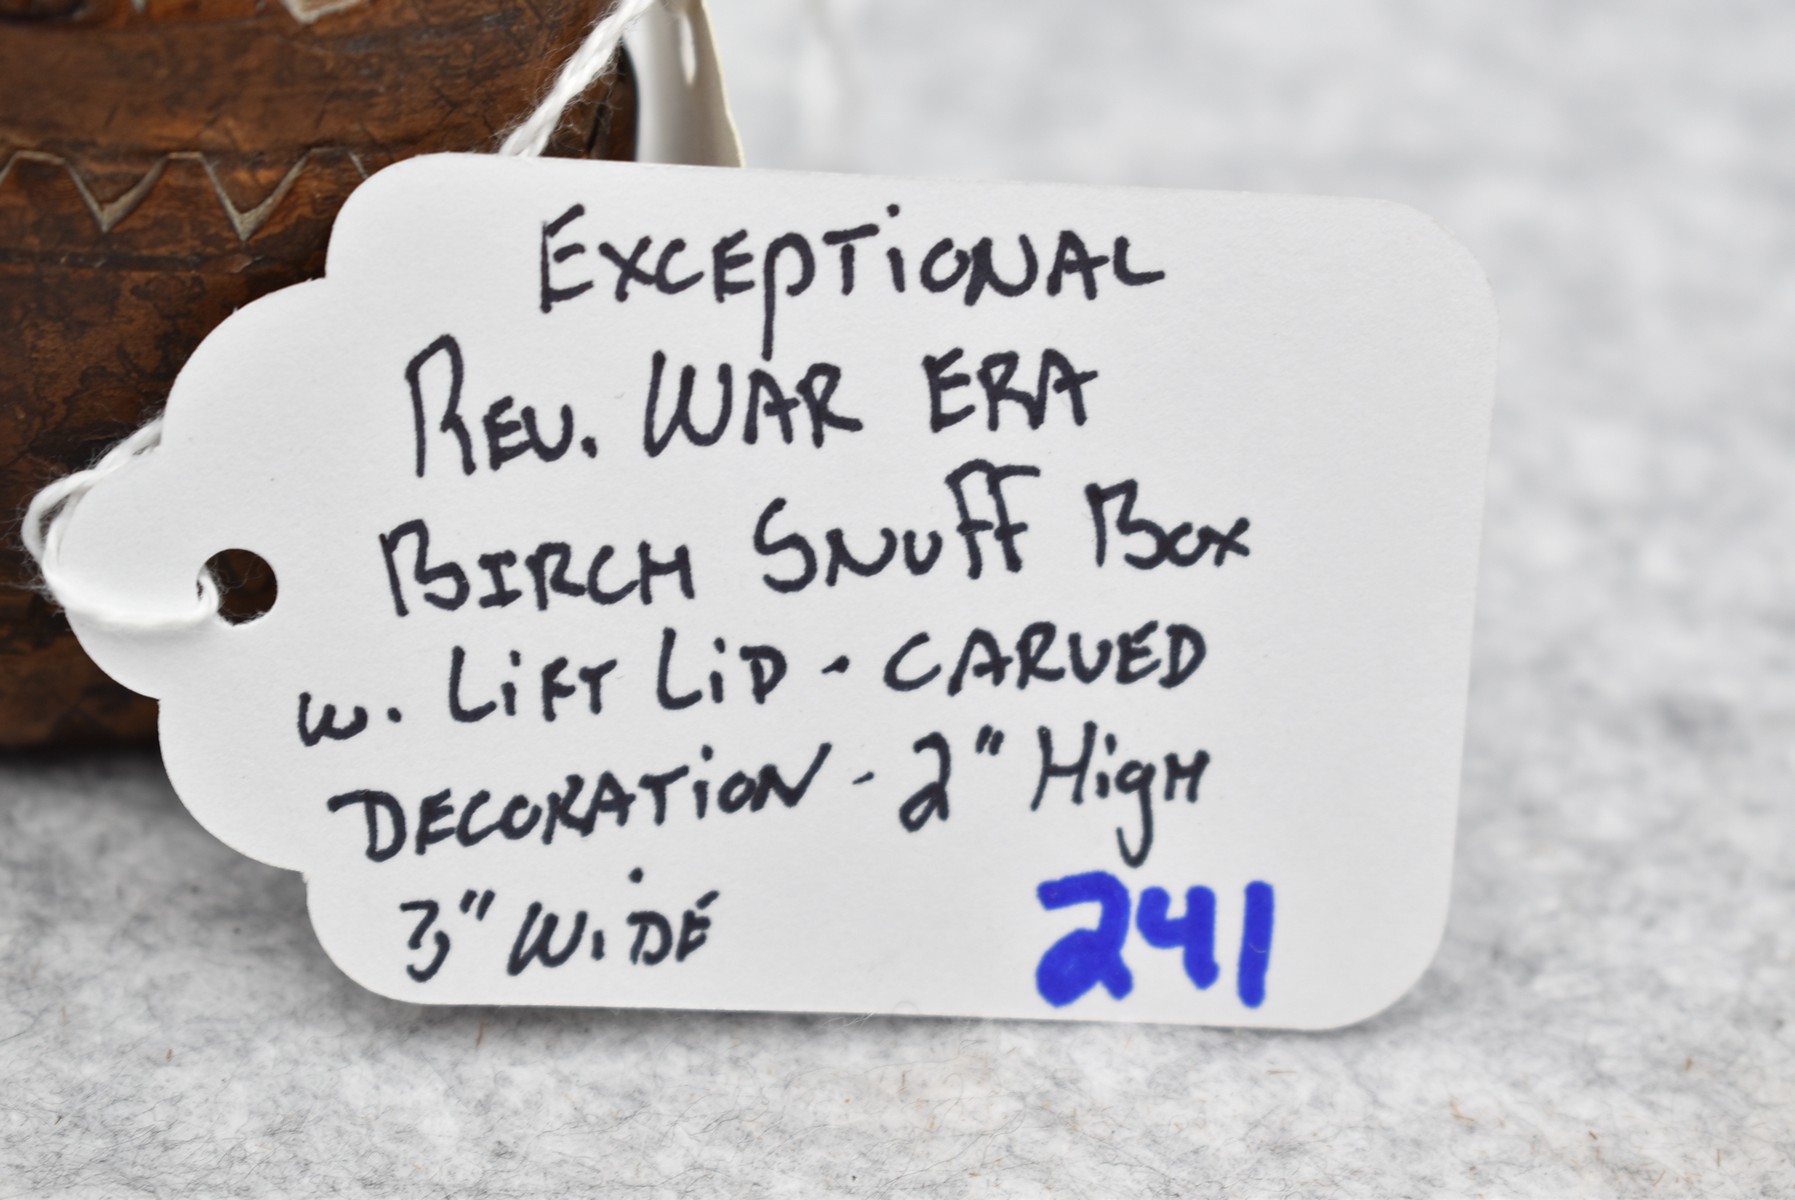 EXCEPTIONAL
REV. WAR ERA
BIRCH SNUFF BOX
w. LiFT LiD - CARVED
DECORATiON - 2" HigH
3" WiDE 241